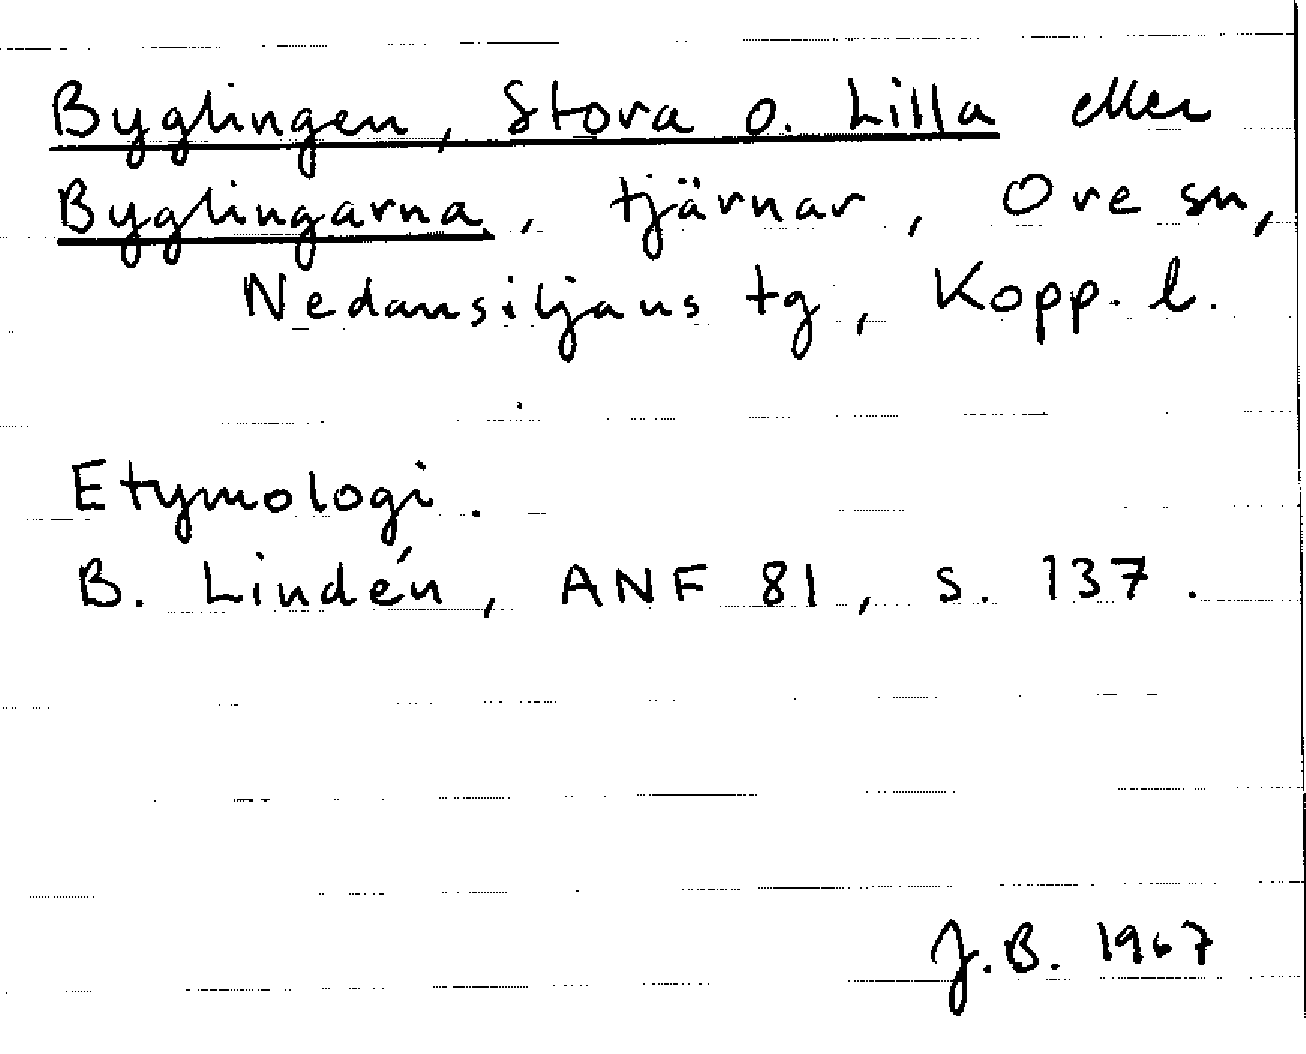 Byglingen, Stora o. Lilla eller
Byglingarna, tjärnar, Ore sn,
Nedansiljans tg, Kopp. l.
Etymologi.
B. Lindén, ANF 81, s. 137.
J.B. 1967